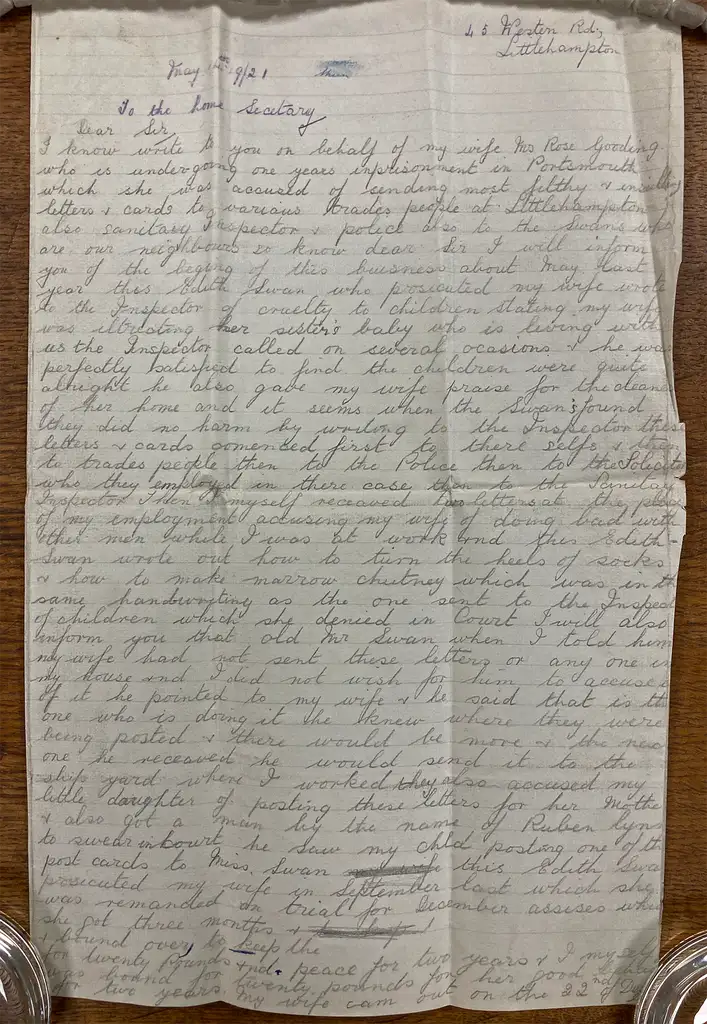 45 Western Rd;
Littlehampton
May 19/21
To the home Secitary
Dear Sir
I know write to you on behalf of my wife Mrs Rose Gooding
who is undergoing one years inprisonment in Portsmouth
which she was accused of sending most filthy & insulting
letters & cards to various trades people at Littlehampton
also sanitary Inspector & police also to the Swans who
are our neighbours so know dear Sir I will inform
you of the beging of this buisness about May last
year this Edith Swan who prosicuted my wife wrote
to the Inspector of cruelty to children stating my wife
was illtreating her sister's baby who is leving with
us the Inspector called on several ocasions & he was
perfectly satisfied to find the children were quite
alright he also gave my wife praise for the
of her home and it seems when the Swan's found
they did no harm by writing to the Inspector these
letters & cards comenced first to there selfs & then
to trades people then to the Police then to the
who they employed in there case then to the Sanitary
Inspector then myself receaved two letters at the place
of my employment accusing my wife of doing bad with
other men while I was at work and this Edith
Swan wrote out how to turn the heels of socks
& how to make marrow chutney which was in the
same handwriting as the one sent to the
of children which she denied in Court I will also
inform you that old Mr Swan when I told him
my wife had not sent these letters or any one in
my house and I did not wish for him to accuse
of it he pointed to my wife & he said that is the
one who is doing it he knew where they were
being posted & there would be more & the
one he receaved he would send it to the
ship yard where I worked they also accused my
little daughter of posting these letters for her
& also got a man by the name of Ruben
to swear in Court he saw my child posting one of the
post cards to Miss. Swan this Edith Swan
prosicuted my wife in September last which she
was remanded on trial for December assises
she got three months &
& bound over to keep the
for twenty pounds and peace for two years & I myself
was bound for twenty pounds for her good
for two years. My wife cam out on the 22nd of